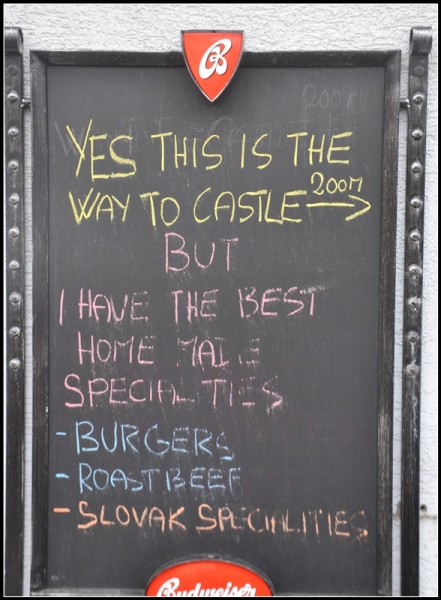 B
YES THIS IS THE
WAY TO CASTLE 200M →
BUT
I HAVE THE BEST
HOME MADE
SPECIALITIES
- BURGERS
- ROASTBEEF
- SLOVAK SPECIALITIES
Budweiser